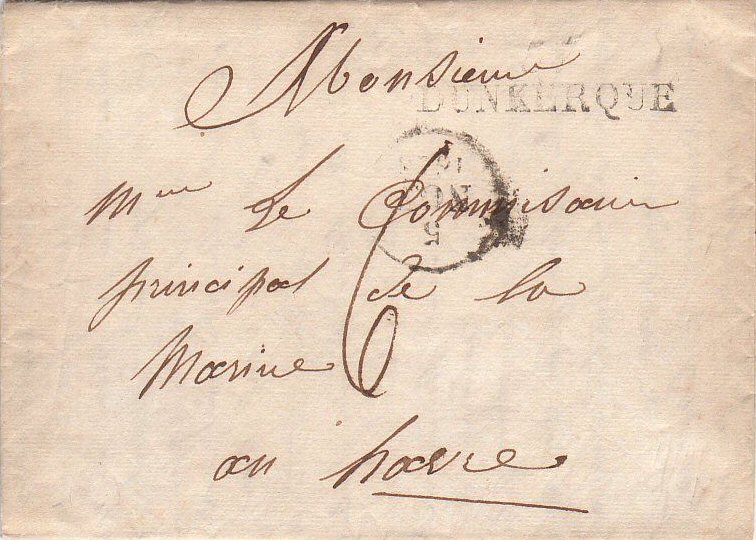 Monsieur
DUNKERQUE
Mr Le Commissaire
principal de la
Marine 6
au havre